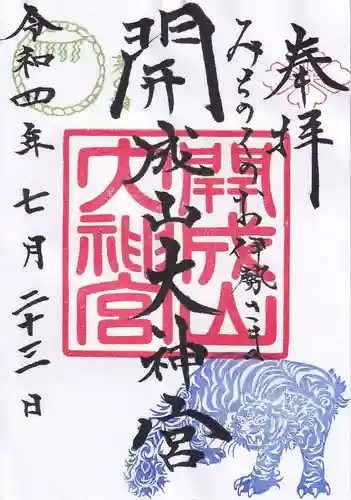 奉拝
みちのくのお伊勢さま
開成山大神宮
開成山
大神宮
令和四年七月二十三日